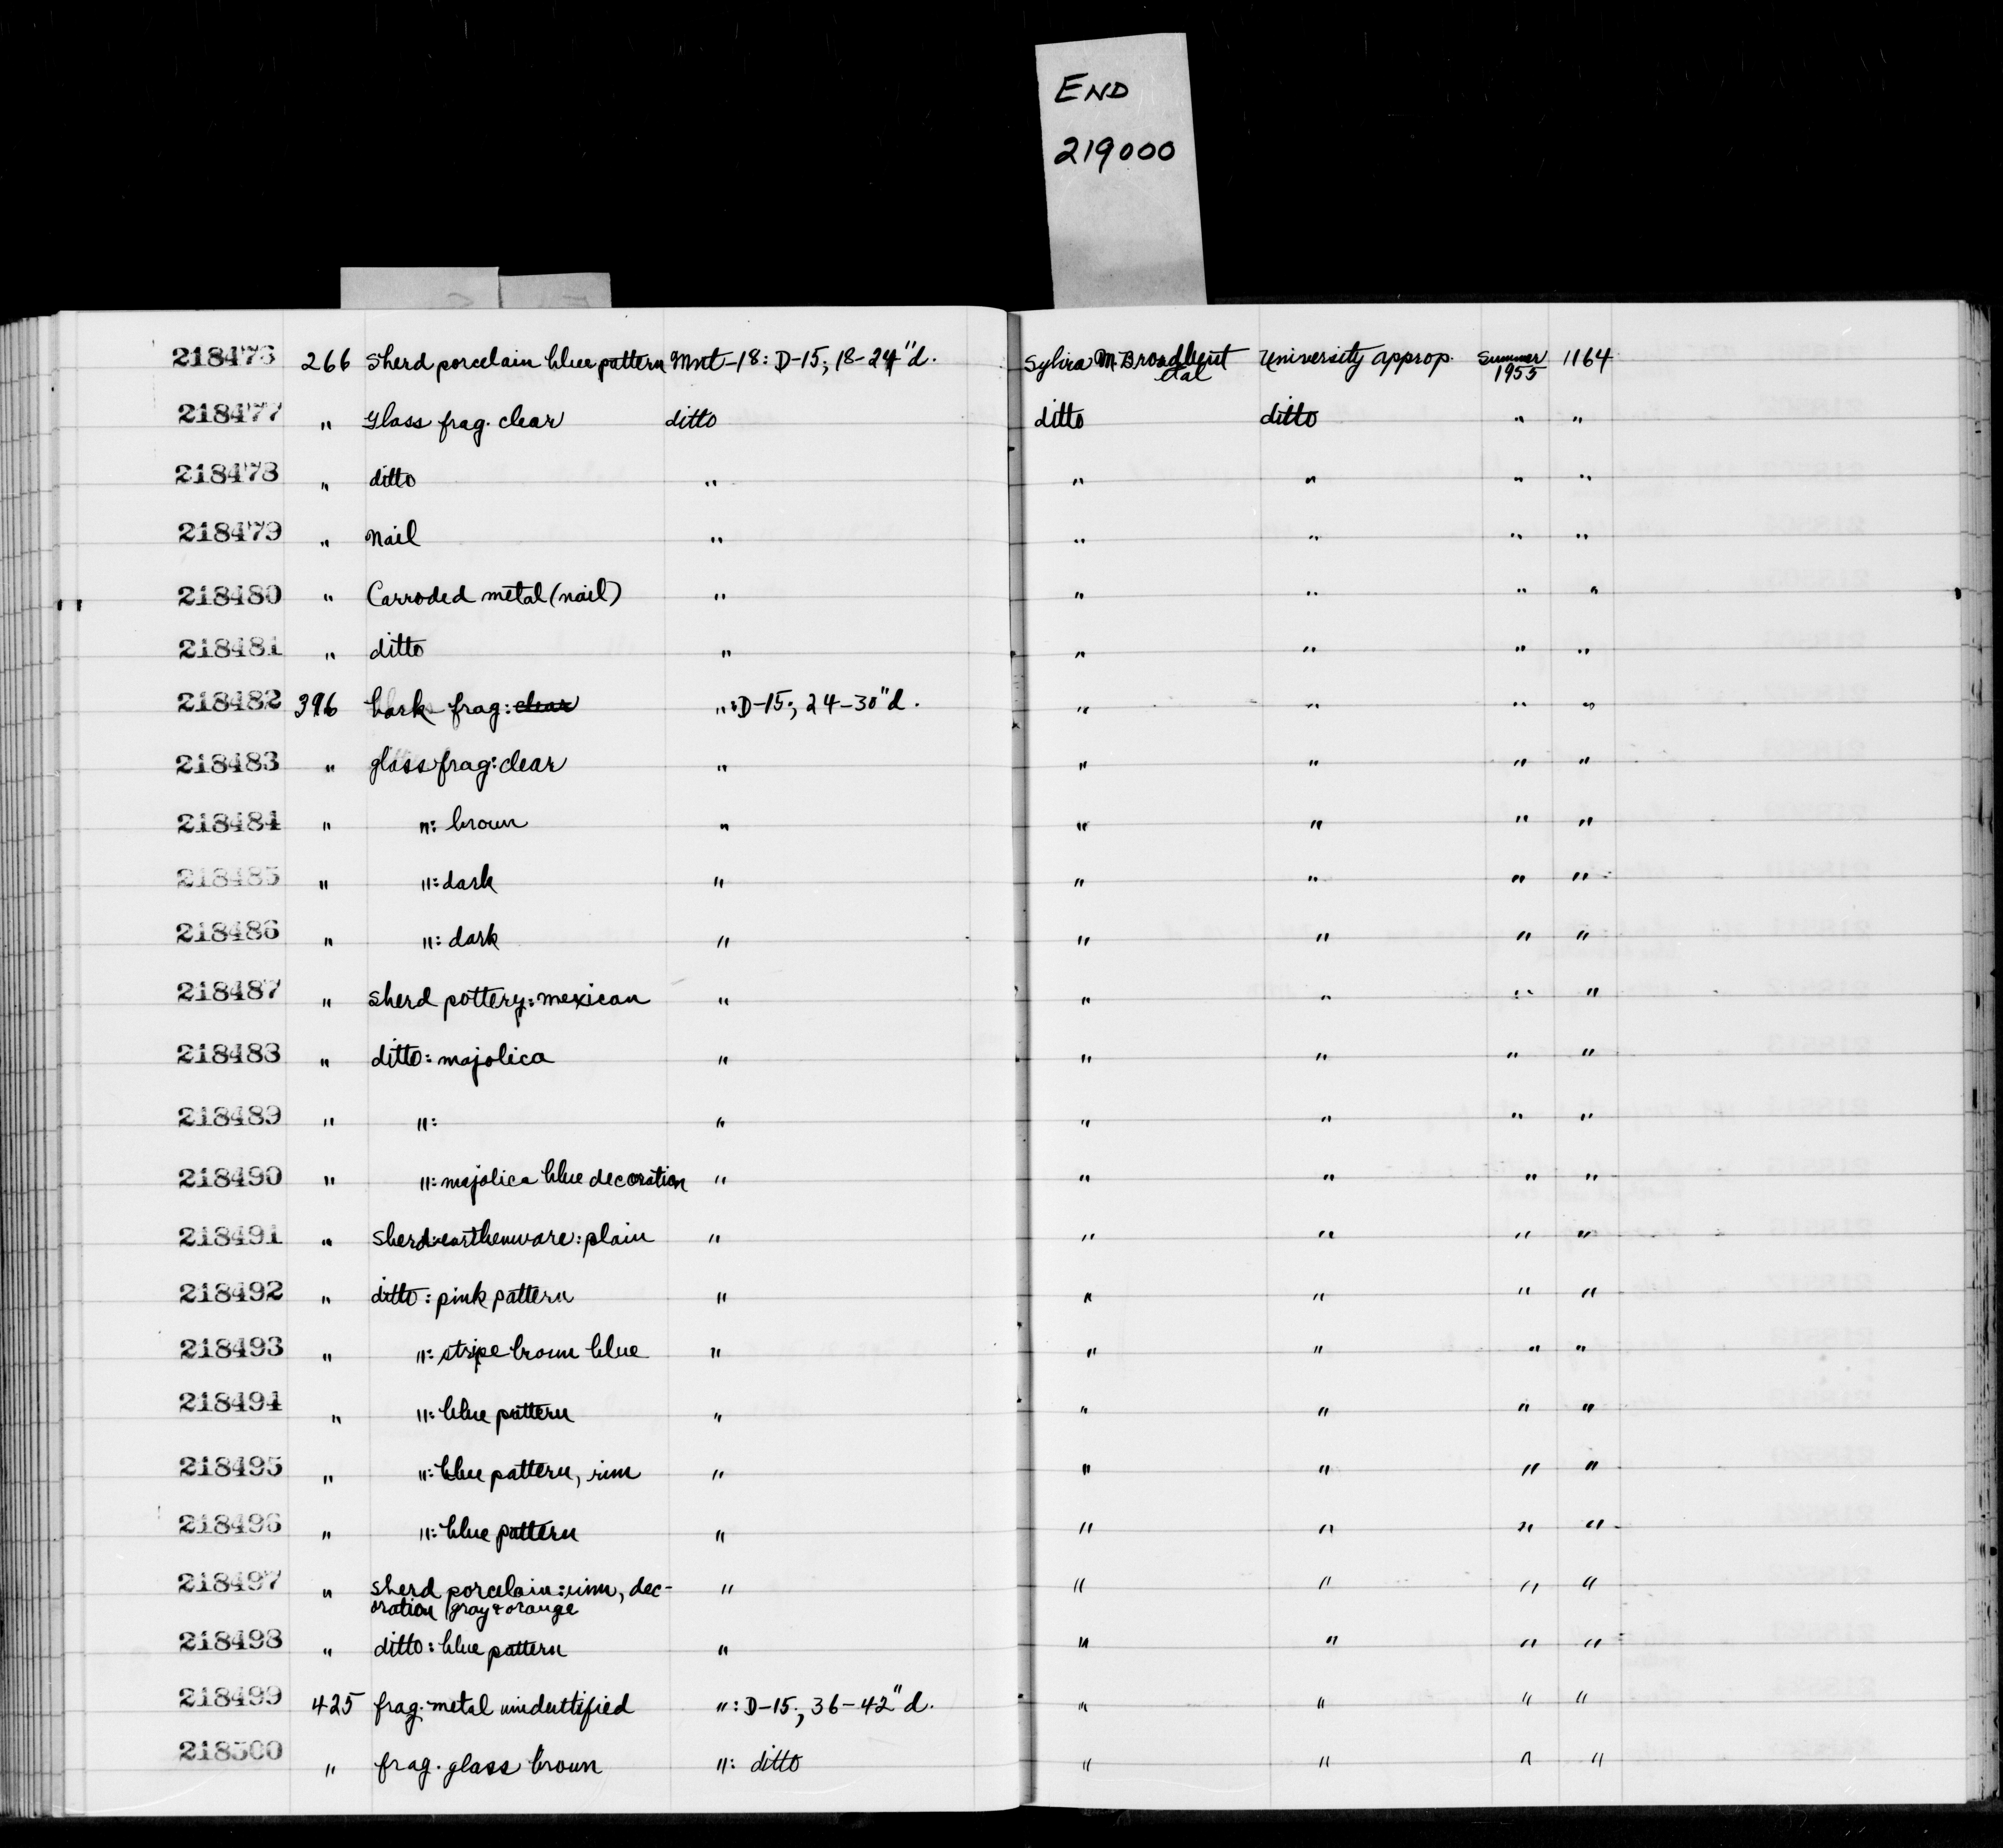 END
219000
218476 266 Sherd porcelain blue pattern Mnt-18: D-15; 18-24"d. Sylvia M. Broadbent et al University approp. Summer 1955 1164
218477 " Glass frag. clear ditto ditto ditto " "
218478 " ditto " " " " "
218479 " Nail " " " " "
218480 " Carroded metal (nail) " " " " "
218481 " ditto " " " " "
218482 396 bark frag: clear ": D-15; 24-30"d. " " " "
218483 " glass frag: clear " " " " "
218484 " ": brown " " " " "
218485 " ": dark " " " " "
218486 " ": dark " " " " "
218487 " sherd pottery: mexican " " " " "
218488 " ditto: majolica " " " " "
218489 " ": " " " " "
218490 " ": majolica blue decoration " " " " "
218491 " sherd: earthenware: plain " " " " "
218492 " ditto: pink pattern " " " " "
218493 " ": stripe brown blue " " " " "
218494 " ": blue pattern " " " " "
218495 " ": blue pattern, rim " " " " "
218496 " ": blue pattern " " " " "
218497 " sherd porcelain: rim, dec- " " " " "
oration gray & orange
218498 " ditto: blue pattern " " " " "
218499 425 frag. metal unidentified ": D-15; 36-42"d. " " " "
218500 " frag. glass brown ": ditto " " " "